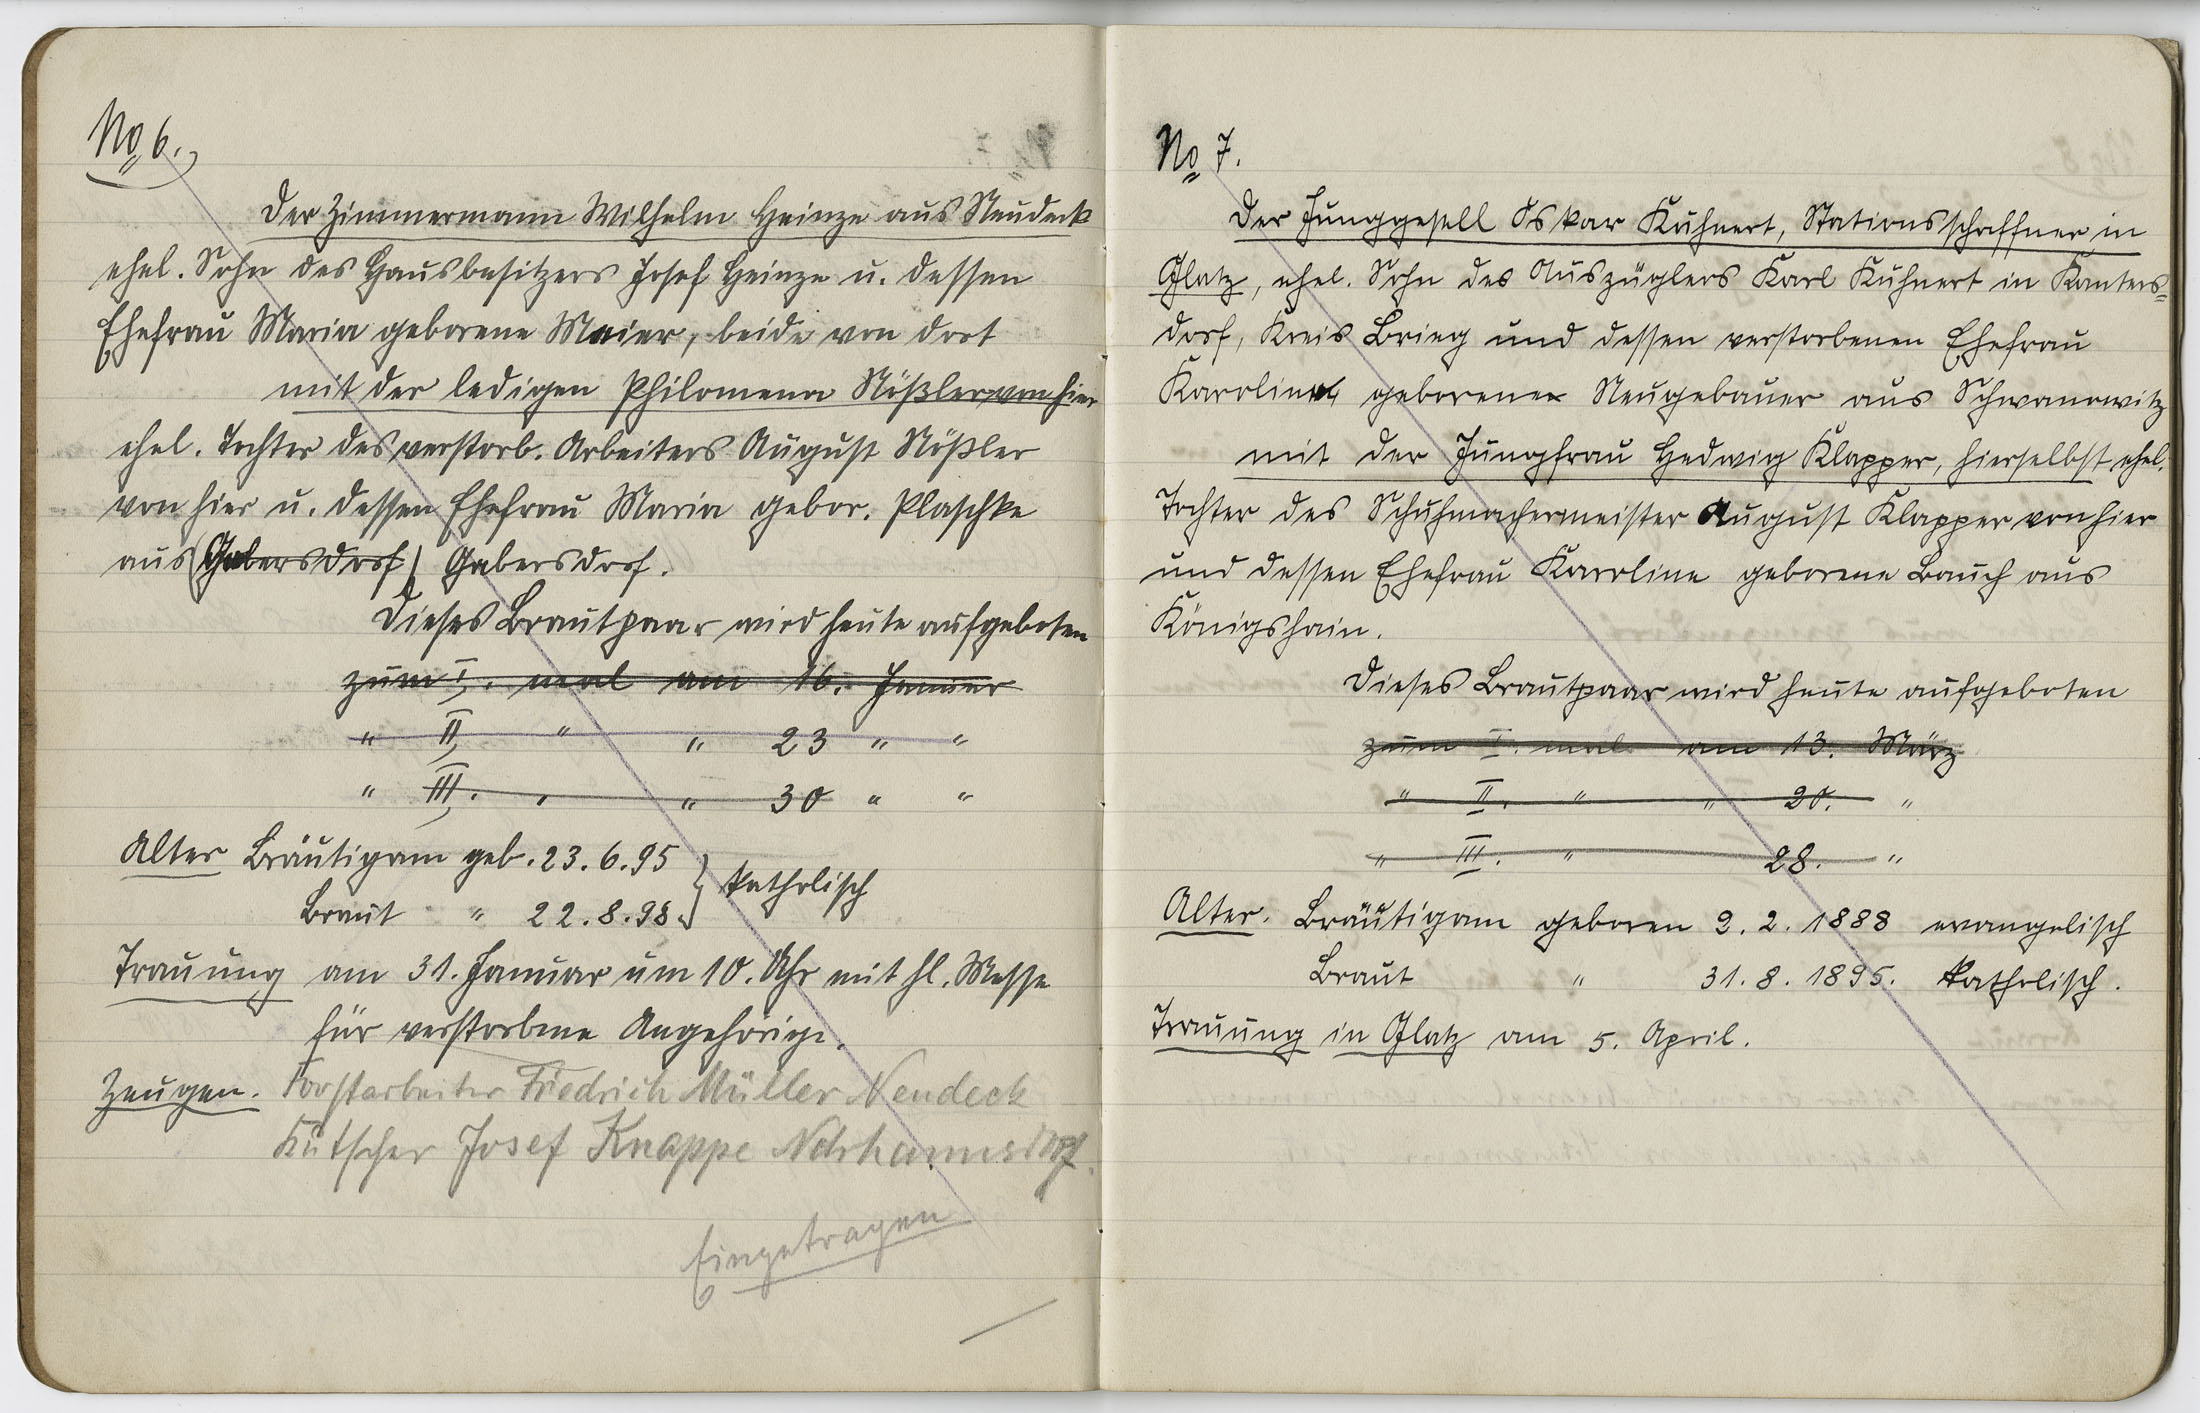 No 6.
Der Zimmermann Wilhelm Heinze aus Neudeck
ehel. Sohn des Hausbesitzers Josef Heinze u. dessen
Ehefrau Maria geborene Maier, beide von dort
mit der ledigen Philomena Nößler von hier
ehel. Tochter des verstorb. Arbeiters August Nößler
von hier u. dessen Ehefrau Maria gebor. Plaschke
aus (Gabersdorf) Gabersdorf.
Dieses Brautpaar wird heute aufgeboten
zum I. mal am 16. Januar
" II. " " 23 " "
" III. " " 30 " "
Alter Bräutigam geb. 23.6.95 } katholisch
Braut " 22.8.98.
Trauung am 31. Januar um 10. Uhr mit hl. Messe
für verstorbene Angehörige.
Zeugen. Forstarbeiter Friedrich Müller Neudeck
Kutscher Josef Knappe
Eingetragen
No 7.
Der Junggesell Oskar Kuhnert, Stationsschaffner in
Glatz, ehel. Sohn des Auszüglers Karl Kuhnert in Kanters=
dorf, Kreis Brieg und dessen verstorbenen Ehefrau
Karoline geborener Neugebauer aus Schwanowitz
mit der Jungfrau Hedwig Klapper, hierselbst ehel.
Tochter des Schuhmachermeister August Klapper von hier
und dessen Ehefrau Karoline geborene Bauch aus
Königshain.
Dieses Brautpaar wird heute aufgeboten
zum I. mal am 13. März
" II. " " 20. "
" III. " 28. "
Alter. Bräutigam geboren 2. 2. 1888 evangelisch
Braut " 31. 8. 1895. katholisch.
Trauung in Glatz am 5. April.